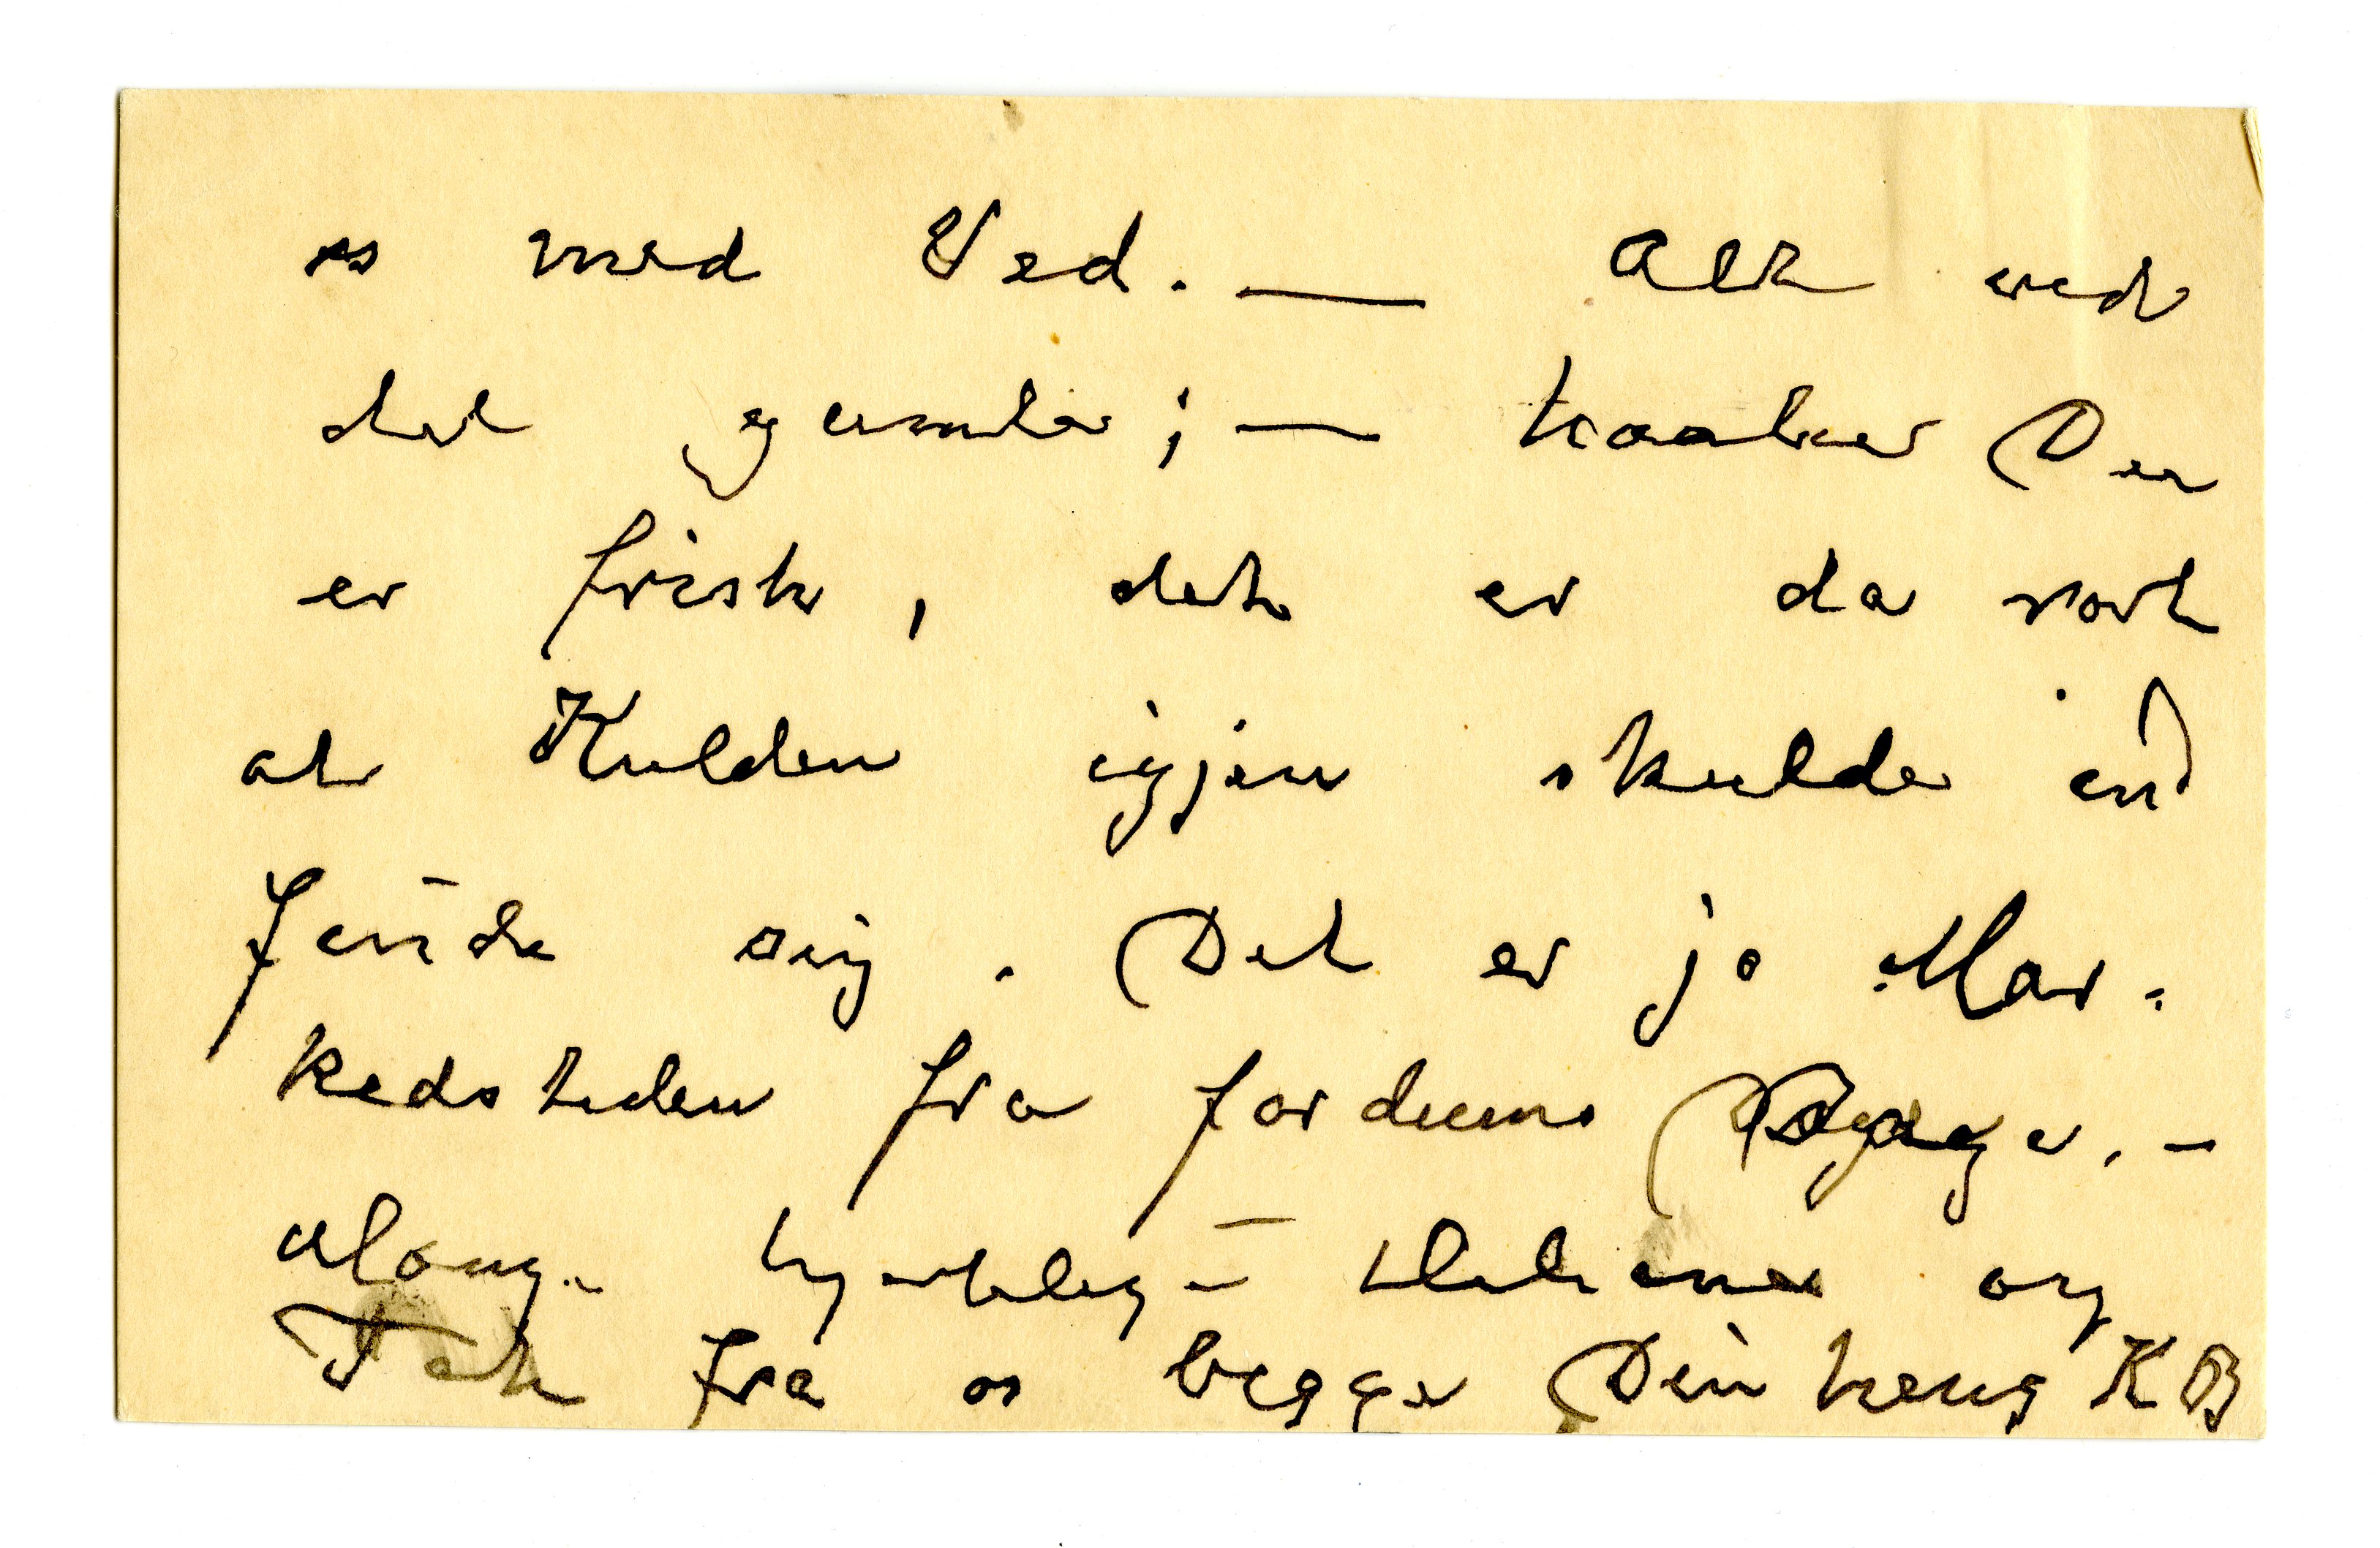 os med Ved. — Alt ved
det gamle; — haaber Du
er frisk, det er da svart
at Kulden igjen skulde ind
finde sig. Det er jo Mar-
kedstiden fra fordums Dage. -
Mange hjertelig - Hilsener og
Tak fra os begge Din heng KB